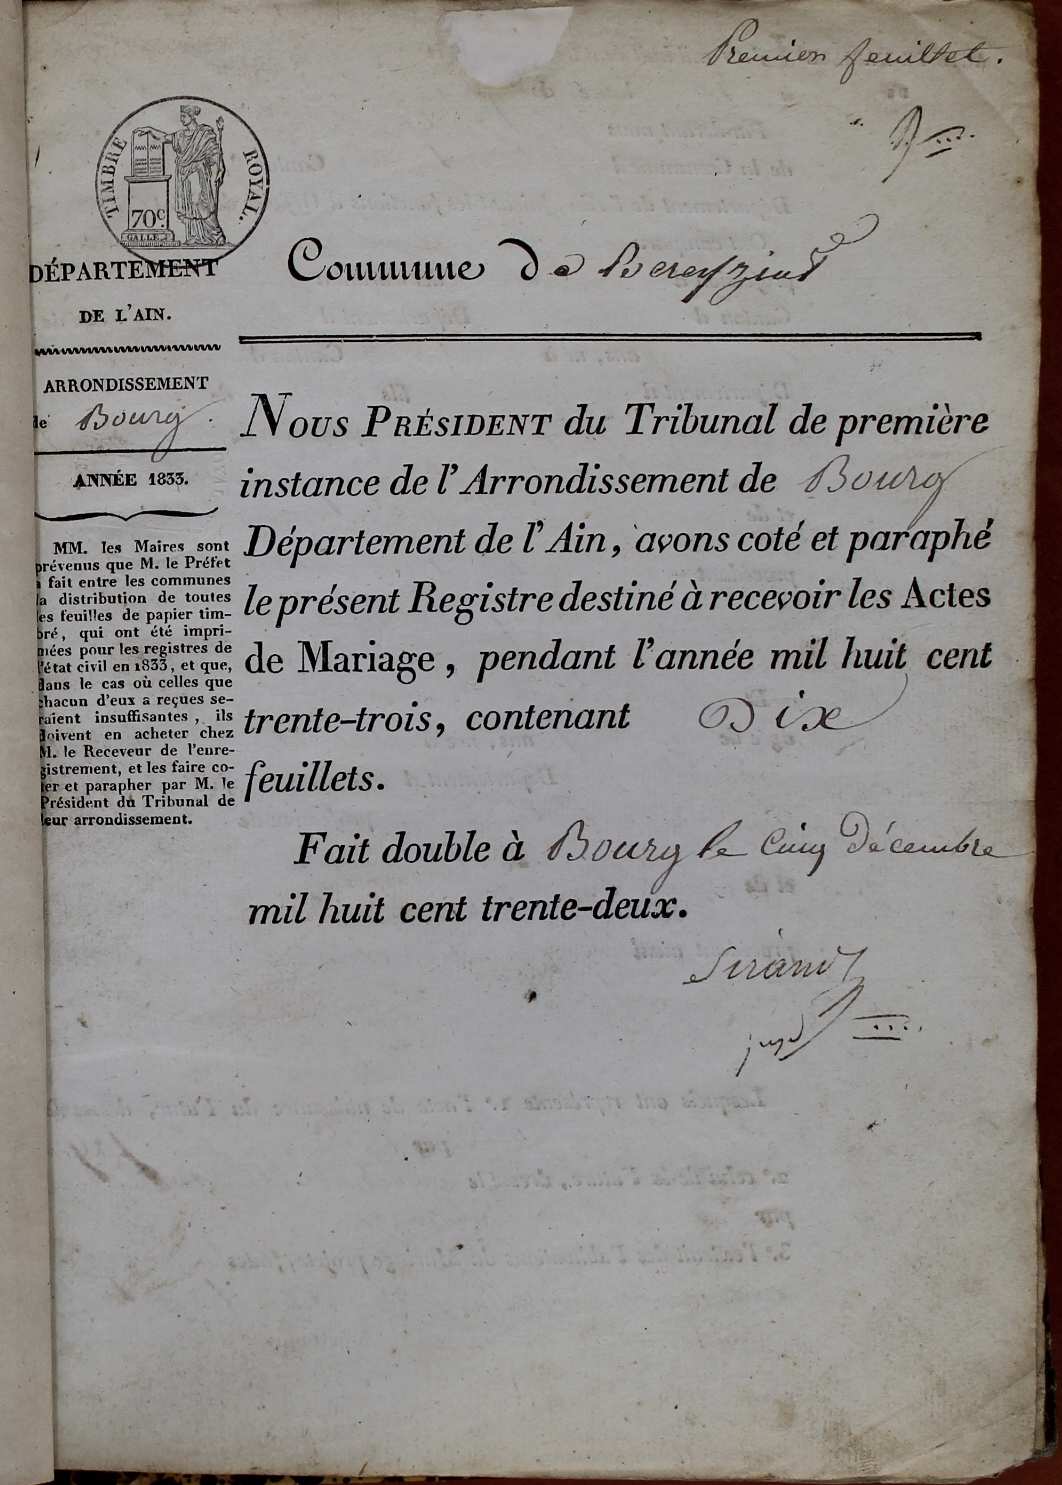 Premier feuillet.
TIMBRE ROYAL.
70c.
GALLE
DÉPARTEMENT
DE L'AIN.
ARRONDISSEMENT
de Bourg.
ANNÉE 1833.
MM. les Maires sont
prévenus que M. le Préfet
a fait entre les communes
la distribution de toutes
les feuilles de papier tim-
bré, qui ont été impri-
mées pour les registres de
l'état civil en 1833, et que,
dans le cas où celles que
chacun d'eux a reçues se-
raient insuffisantes, ils
doivent en acheter chez
M. le Receveur de l'enre-
gistrement, et les faire co-
ter et parapher par M. le
Président du Tribunal de
leur arrondissement.
Commune de Bereyziat
Nous Président du Tribunal de première
instance de l'Arrondissement de Bourg
Département de l'Ain, avons coté et paraphé
le présent Registre destiné à recevoir les Actes
de Mariage, pendant l'année mil huit cent
trente-trois, contenant Dix
feuillets.
Fait double à Bourg le cinq Décembre
mil huit cent trente-deux.
Sirand
juge